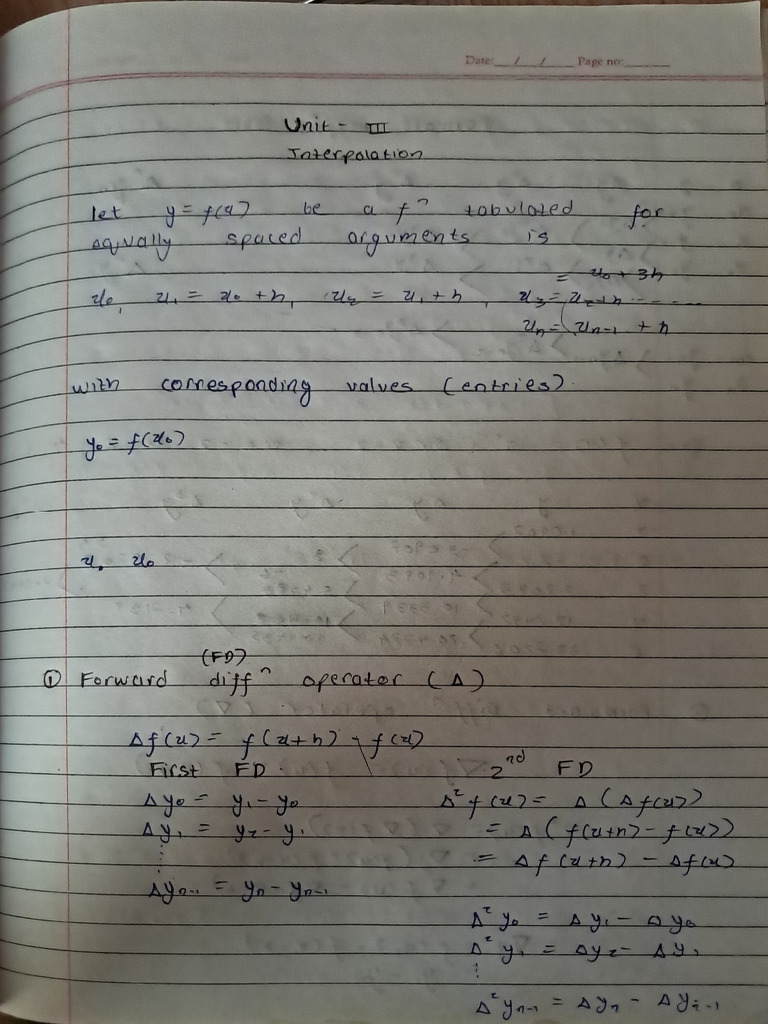 Date: __/__/__ Page no: ____
Unit - III
Interpolation
let y = f(x) be a fⁿ tabulated for
equally spaced arguments is
= x₀ + 3h
x₀, x₁ = x₀ + h, x₂ = x₁ + h, x₃ = x₂ + h - - - ....
xₙ = xₙ₋₁ + h
with corresponding values (entries).
y₀ = f(x₀)
x. x₀
(FD)
① Forward diffⁿ operator (Δ)
Δf(x) = f(x+h) - f(x)
First FD.
Δy₀ = y₁ - y₀
Δy₁ = y₂ - y₁
⋮
Δyₙ₋₁ = yₙ - yₙ₋₁
2nd FD
Δ² f(x) = Δ (Δf(x))
= Δ (f(x+h) - f(x))
= Δf(x+h) - Δf(x)
Δ² y₀ = Δy₁ - Δy₀
Δ² y₁ = Δy₂ - Δy₁
⋮
Δ² yₙ₋₁ = Δyₙ - Δyₙ₋₁